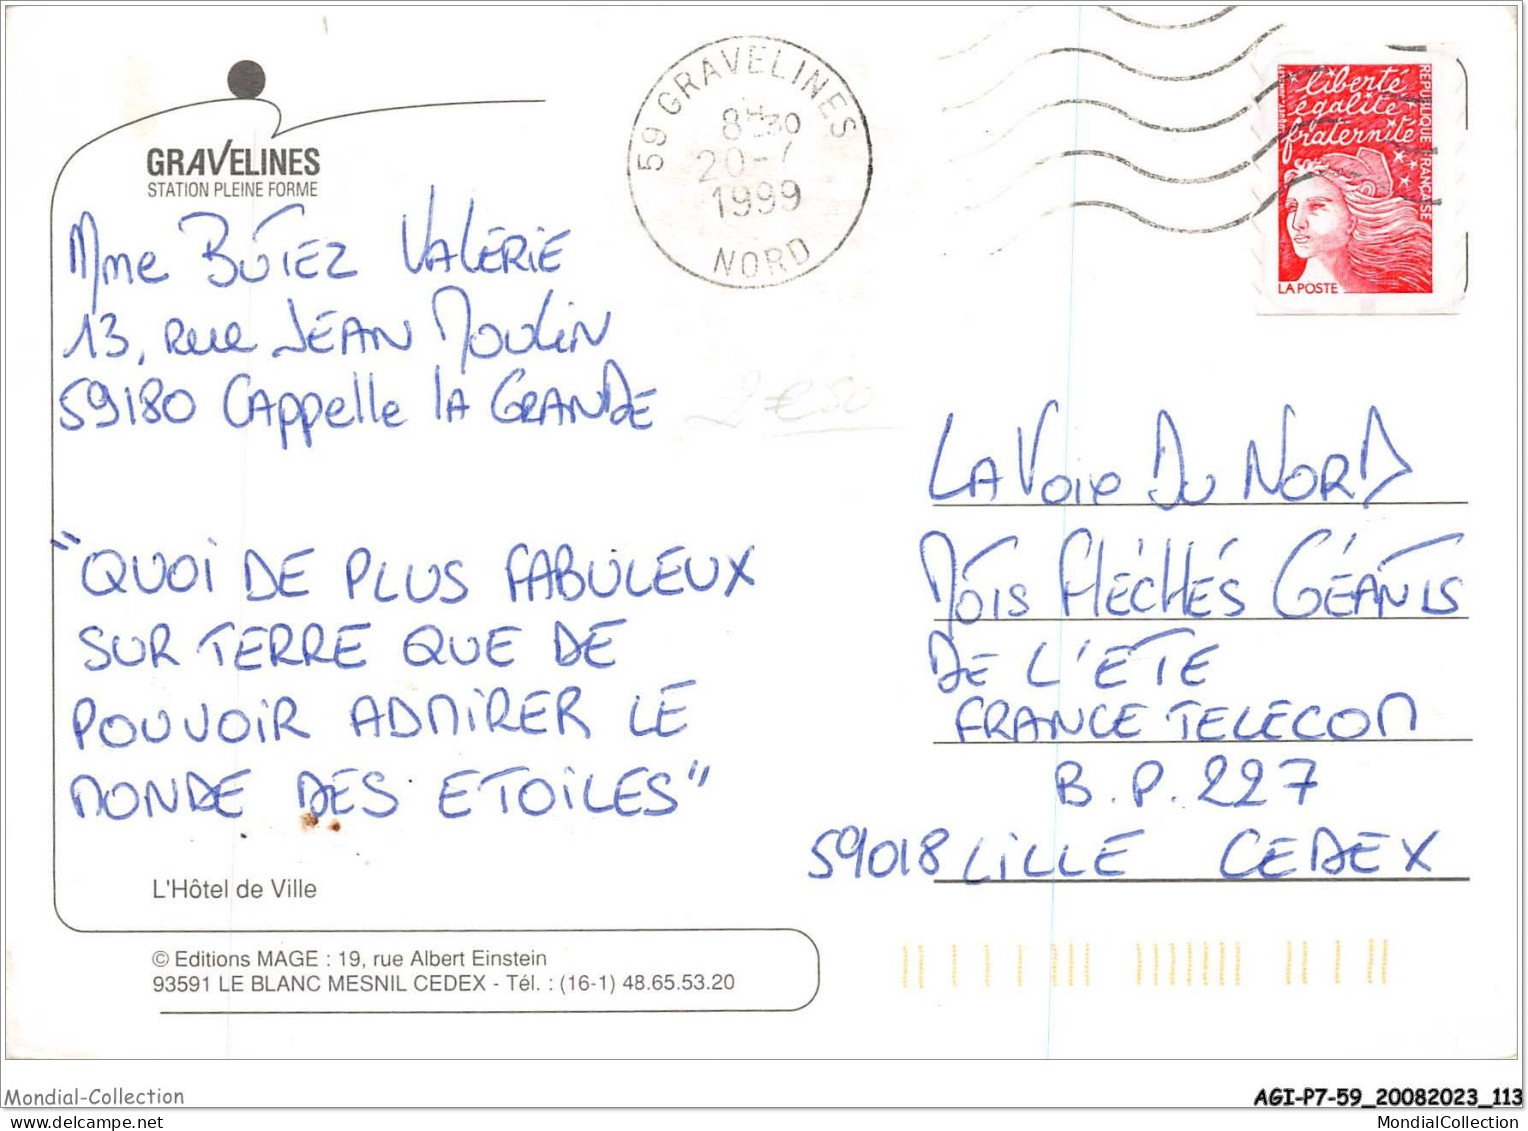 GRAVELINES
STATION PLEINE FORME
59 GRAVELINES
8H30
20-7
1999
NORD
liberté
égalité
fraternité
REPUBLIQUE FRANÇAISE
LA POSTE
Mme BUTEZ VALERIE
13, Rue JEAN MOULIN
59180 CAppelle lA GRANDE
2€50
"QUOI DE PLUS FABULEUX
SUR TERRE QUE DE
POUVOIR ADMIRER LE
MONDE DES ETOILES"
LA Voix DU NORD
MOTS FLÉCHÉS GÉANTS
DE L'ÉTÉ
FRANCE TELECOM
B.P. 227
59018 LILLE CEDEX
L'Hôtel de Ville
© Editions MAGE : 19, rue Albert Einstein
93591 LE BLANC MESNIL CEDEX - Tél. : (16-1) 48.65.53.20
Mondial-Collection
AGI-P7-59_20082023_113
MondialCollection